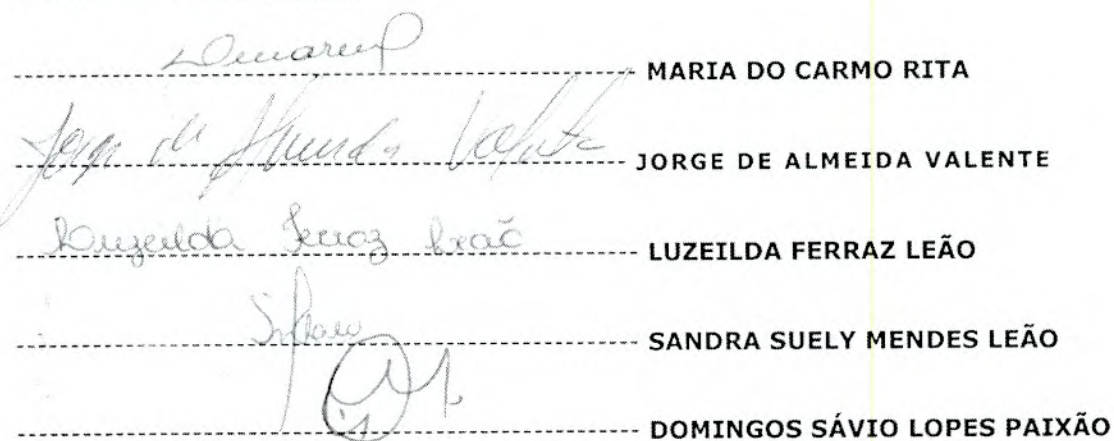 MARIA DO CARMO RITA
Jorge de Almeida Valente JORGE DE ALMEIDA VALENTE
Luzeilda Ferraz Leão LUZEILDA FERRAZ LEÃO
SANDRA SUELY MENDES LEÃO
DOMINGOS SÁVIO LOPES PAIXÃO